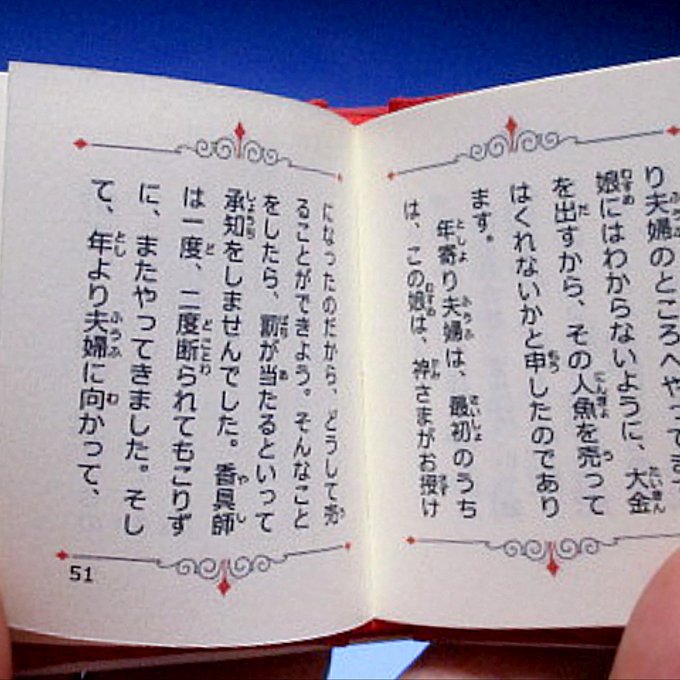 り夫婦のところへやってき
娘にはわからないように、大金
を出すから、その人魚を売って
はくれないかと申したのであり
ます。
年寄り夫婦は、最初のうち
は、この娘は、神さまがお授け
になったのだから、どうして売
ることができよう。そんなこと
をしたら、罰が当たるといって
承知をしませんでした。香具師
は一度、二度断られてもこりず
に、またやってきました。そし
て、年より夫婦に向かって、
51